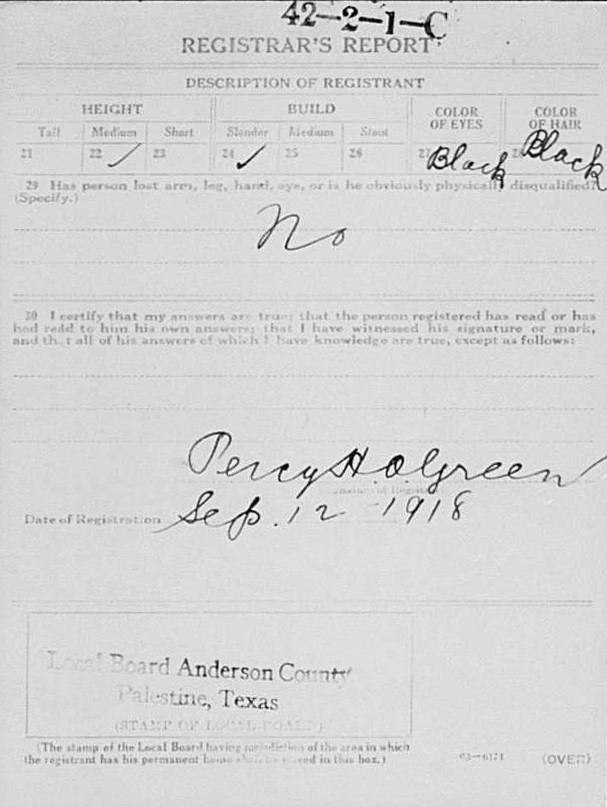 42-2-1-C
REGISTRAR'S REPORT
DESCRIPTION OF REGISTRANT
HEIGHT BUILD COLOR OF EYES COLOR OF HAIR
Tall Medium Short Slender Medium Stout
21 22 ✓ 23 24 ✓ 25 26 27 Black 28 Black
29 Has person lost arm, leg, hand, eye, or is he obviously physically disqualified?
(Specify.)
No
30 I certify that my answers are true; that the person registered has read or has
had read to him his own answers; that I have witnessed his signature or mark,
and that all of his answers of which I have knowledge are true, except as follows:
Percy Holgreen
Date of Registration Sep. 12 1918
Local Board Anderson County
Palestine, Texas
(STAMP OF LOCAL BOARD)
(The stamp of the Local Board having jurisdiction of the area in which
the registrant has his permanent home shall be placed in this box.)
03—6171 (OVER)